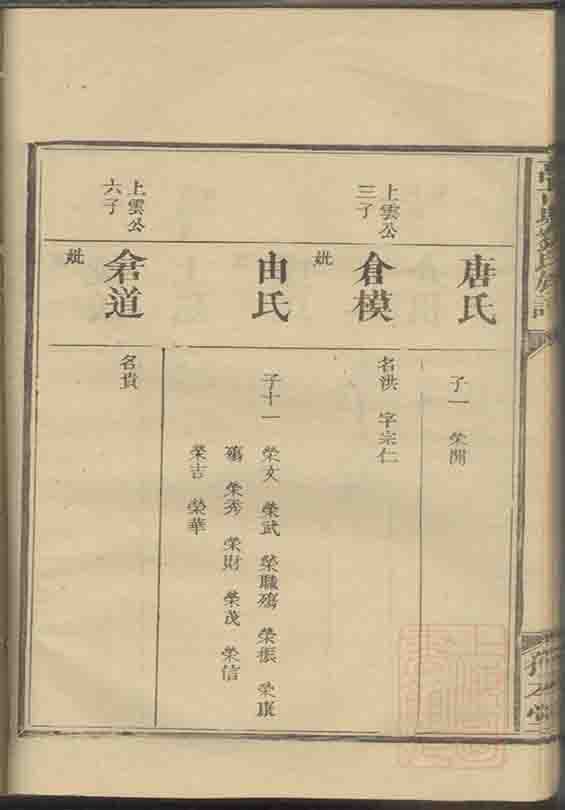 唐氏
子一 榮開
上雲公
三子
倉模
名洪 字宗仁
妣
由氏
子十一 榮文 榮武 榮職殤 榮振 榮康
殤 榮秀 榮財 榮茂 榮信
榮吉 榮華
上雲公
六子
倉道
名貴
妣